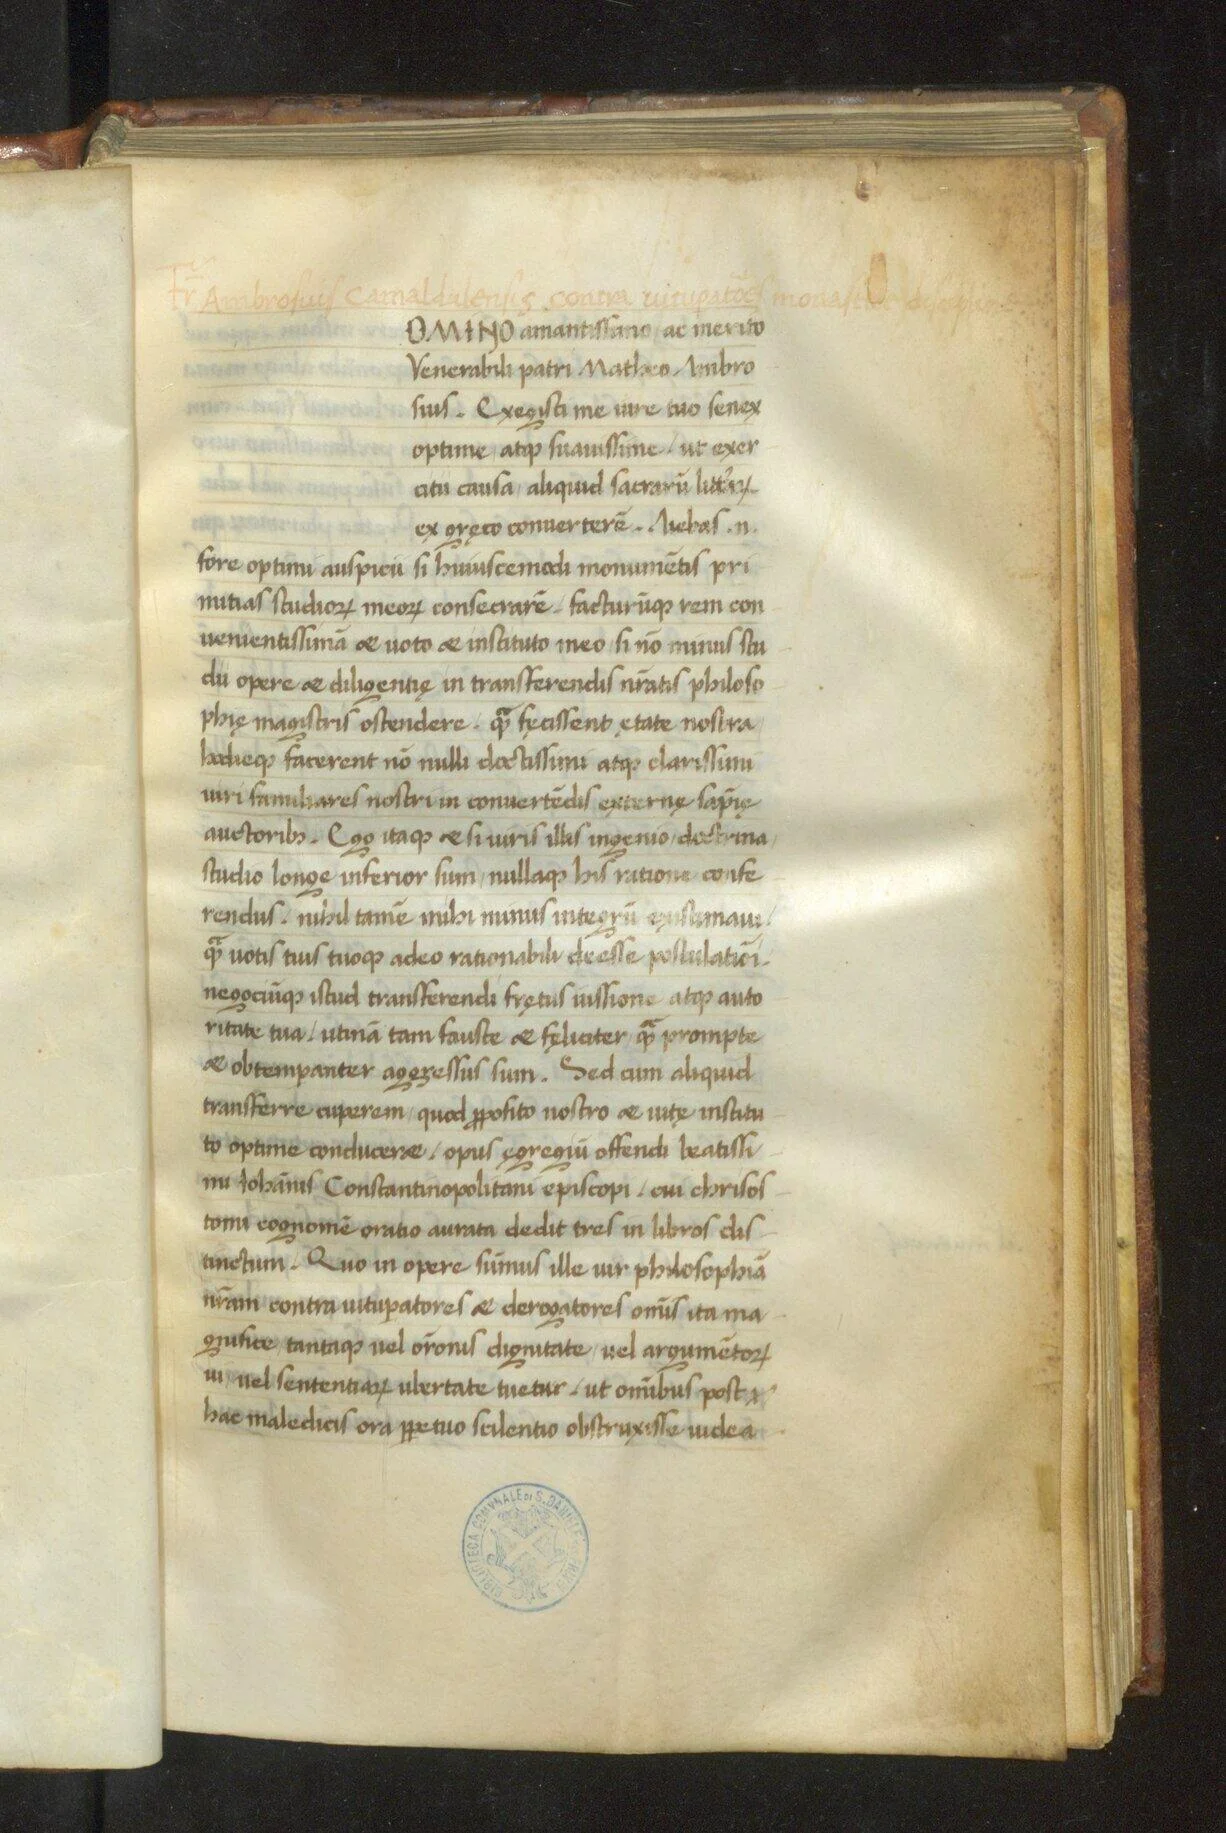 Fr̃ Ambrosius Camaldulensis contra uitupatões monasticę disciplinę
OMINO amantissimo ac merito
Venerabili patri Matheo Ambro
sius. Exegisti me iure tuo senex
optime atqꝫ suauissime / ut exer
citii causa / aliquid sacrarũ litterꝝ
ex gręco conuerterẽ. Aiebas .n.
fore optimi auspicii si huiuscemodi monumẽtis pri
mitias studioꝝ meoꝝ consecrarẽ / facturũqꝫ rem con
uenientissimã & uoto & instituto meo / si nõ minus stu
dii opere & diligentię in transferendis nr̃atis philoso
phię magistris ostendere / quã fęcissent ętate nostra /
hodieqꝫ facerent nõ nulli doctissimi atqꝫ clarissimi
uiri familiares nostri in conuertẽdis externę sap̃ię
auctoribꝫ. Ego itaqꝫ & si uiris illis ingenio / doctrina /
studio longe inferior sum / nullaqꝫ his ratione confe
rendus / nihil tamẽ mihi minus integrũ existimaui /
quã uotis tuis tuoqꝫ adeo rationabili deesse postulatiõi.
negociũqꝫ istud transferendi frętus iussione atqꝫ auto
ritate tua / utinã tam fauste & fęliciter / quã prompte
& obtempanter aggressus sum. Sed cum aliquid
transferre cuperem / quod ꝓposito nostro & uitę institu
to optime conducer& / opus ęgregiũ offendi beatissi
mi Iohãnis Constantinopolitani episcopi / cui chrisos
tomi cognomẽ oratio aurata dedit tres in libros dis
tinctum. Quo in opere sũmus ille uir philosophiã
nr̃am contra uituꝑatores & derogatores om̃is ita ma
gnifice / tantaqꝫ uel or̃onis dignitate / uel argumẽtoꝝ
ui / uel sententiaꝝ ubertate tuetur / ut om̃ibus post
hac maledicis ora ꝑpetuo scilentio obstruxisse uidea
BIBLIOTECA COMUNALE DI S. DANIELE DEL FRIULI